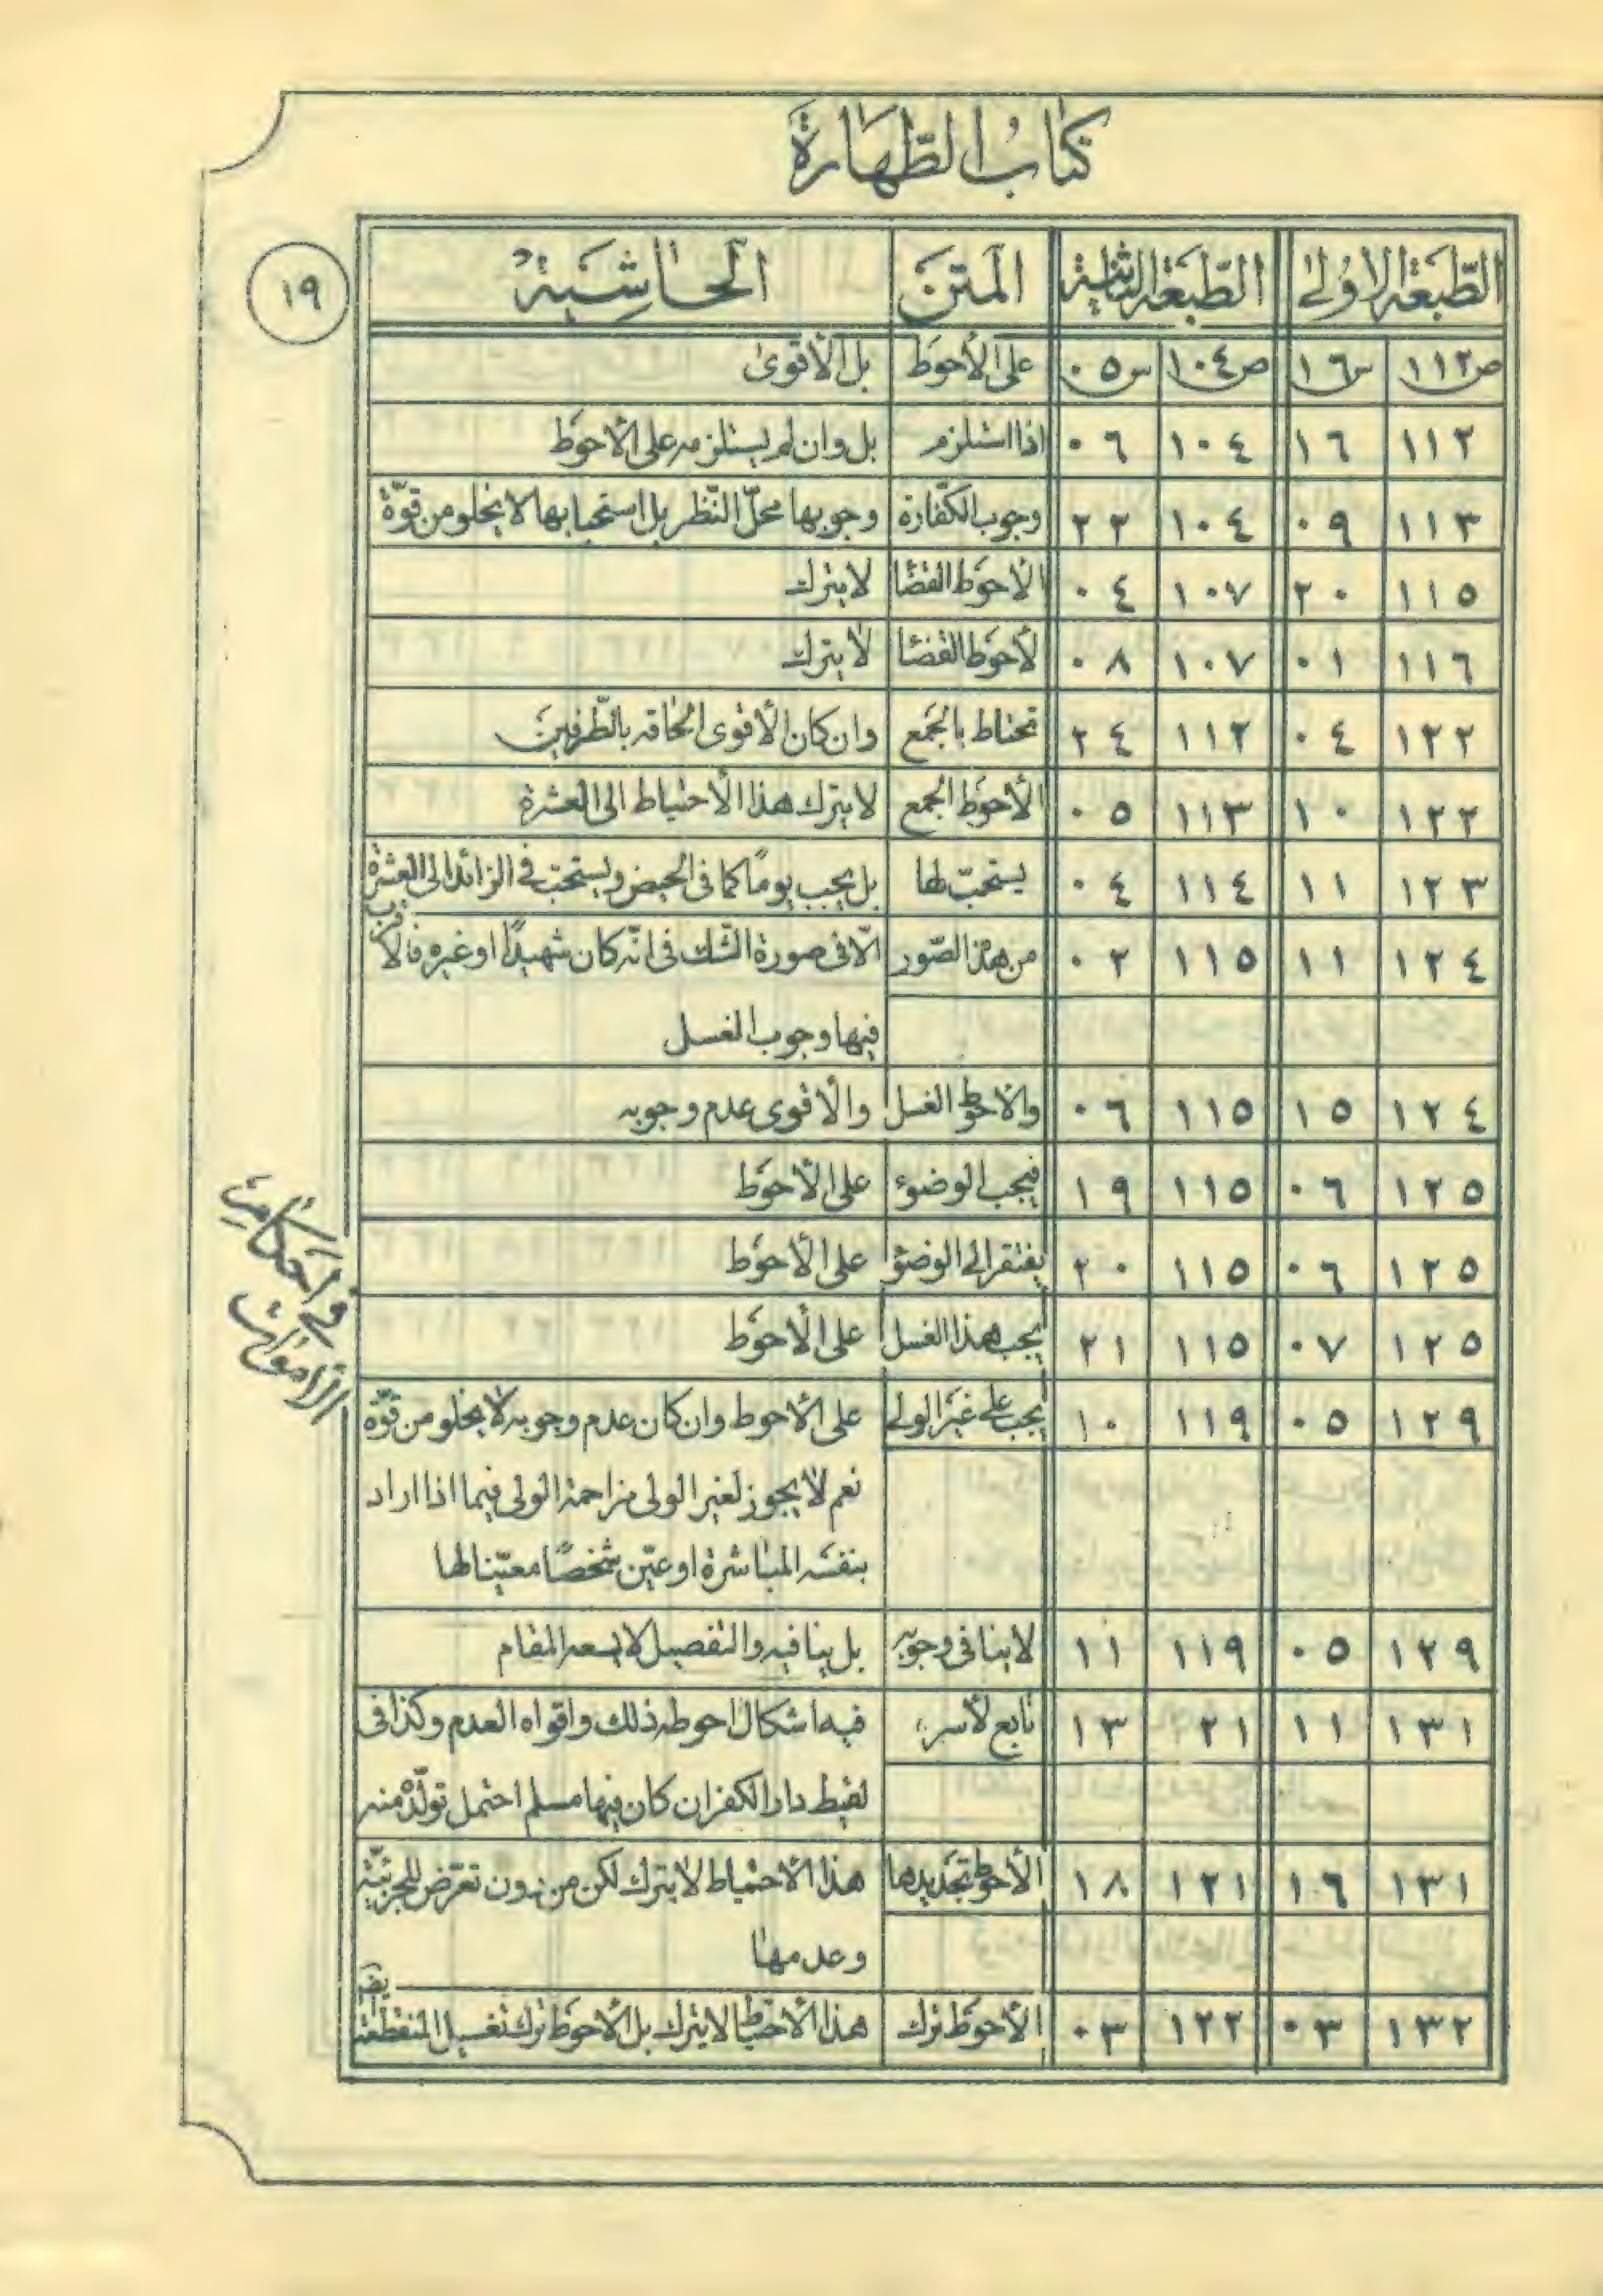 كتاب الطّهارة
١٩
الطّبعة الاولى الطّبعة الثانية المتن الحاشية
ص١١٢ س١٦ ص١٠٤ س٠٥ على الأحوط بل الأقوى
١١٢ ١٦ ١٠٤ ٠٦ اذا استلزم بل وان لم يستلزمه على الأحوط
١١٣ ٠٩ ١٠٤ ٢٢ وجوب الكفّارة وجوبها محلّ النّظر بل استحبابها لا يخلو من قوّة
١١٥ ٢٠ ١٠٧ ٠٤ الأحوط القضا لا يترك
١١٦ ٠١ ١٠٧ ٠٨ لأحوط القضا لا يترك
١٢٢ ٠٤ ١١٢ ٢٤ تحتاط بالجمع وان كان الأقوى الحاقه بالطّرفين
١٢٢ ١٠ ١١٣ ٠٥ الأحوط الجمع لا يترك هذا الأحتياط الى العشرة
١٢٣ ١١ ١١٤ ٠٤ يستحبّ لها بل يجب يومًا كما فى الحيض ويستحبّ فى الزائد الى العشرة
١٢٤ ١١ ١١٥ ٠٢ من هذه الصّور الّا فى صورة الشّك فى انّه كان شهيدًا او غيره فالأقرب
فيها وجوب الغسل
١٢٤ ١٥ ١١٥ ٠٦ والاحوط الغسل والأقوى عدم وجوبه
١٢٥ ٠٦ ١١٥ ١٩ فيجب الوضوء على الأحوط
١٢٥ ٠٦ ١١٥ ٢٠ يفتقر الى الوضؤ على الأحوط
١٢٥ ٠٧ ١١٥ ٢١ يجب هذا الغسل على الأحوط
١٢٩ ٠٥ ١١٩ ١٠ يجب على غير الولى على الأحوط وان كان عدم وجوبه لا يخلو من قوّة
نعم لا يجوز لغير الولى مزاحمة الولى فيما اذا اراد
بنفسه المباشرة او عيّن شخصًا معيّنا لها
١٢٩ ٠٥ ١١٩ ١١ لا ينافى وجوبه بل ينافيه والتفصيل لا يسعه المقام
١٣١ ١١ ٢١ ١٣ تابع لأسره فيه اشكال احوطه ذلك واقواه العدم وكذا فى
لقيط دار الكفر ان كان فيها مسلم احتمل تولّده منه
١٣١ ١٦ ١٢١ ١٨ الأحوط تجديدها هذا الأحتياط لا يترك لكن من دون تعرّض للجزئيّة
وعدمها
١٣٢ ٠٣ ١٢٢ ٠٣ الأحوط ترك هذا الأحتياط لا يترك بل الأحوط ترك تغسيل المنقطعة ايضا